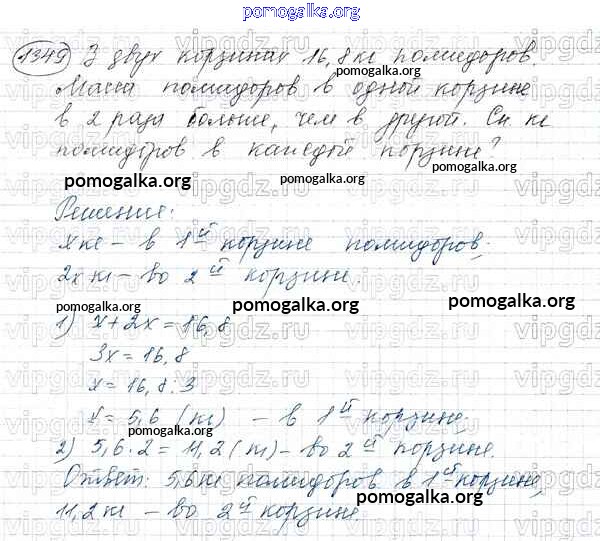 pomogalka.org
1349 З двух корзинах 16,8 кг помидоров.
Масса помидоров в одной корзине
в 2 раза больше, чем в другой. Ск. кг
помидоров в каждой корзине?
pomogalka.org pomogalka.org
Решение:
x кг – в 1ой корзине помидоров;
2x кг – во 2ой корзине.
pomogalka.org pomogalka.org
1) x + 2x = 16,8
3x = 16,8
x = 16,8 : 3
x = 5,6 (кг) – в 1й корзине.
2) 5,6 · 2 = 11,2 (кг) – во 2й корзине.
pomogalka.org
Ответ: 5,6 кг помидоров в 1й корзине,
11,2 кг – во 2й корзине.
pomogalka.org
vipgdz.ru